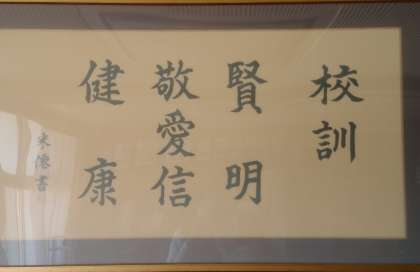 校訓
賢明
敬愛信
健康
米僊書